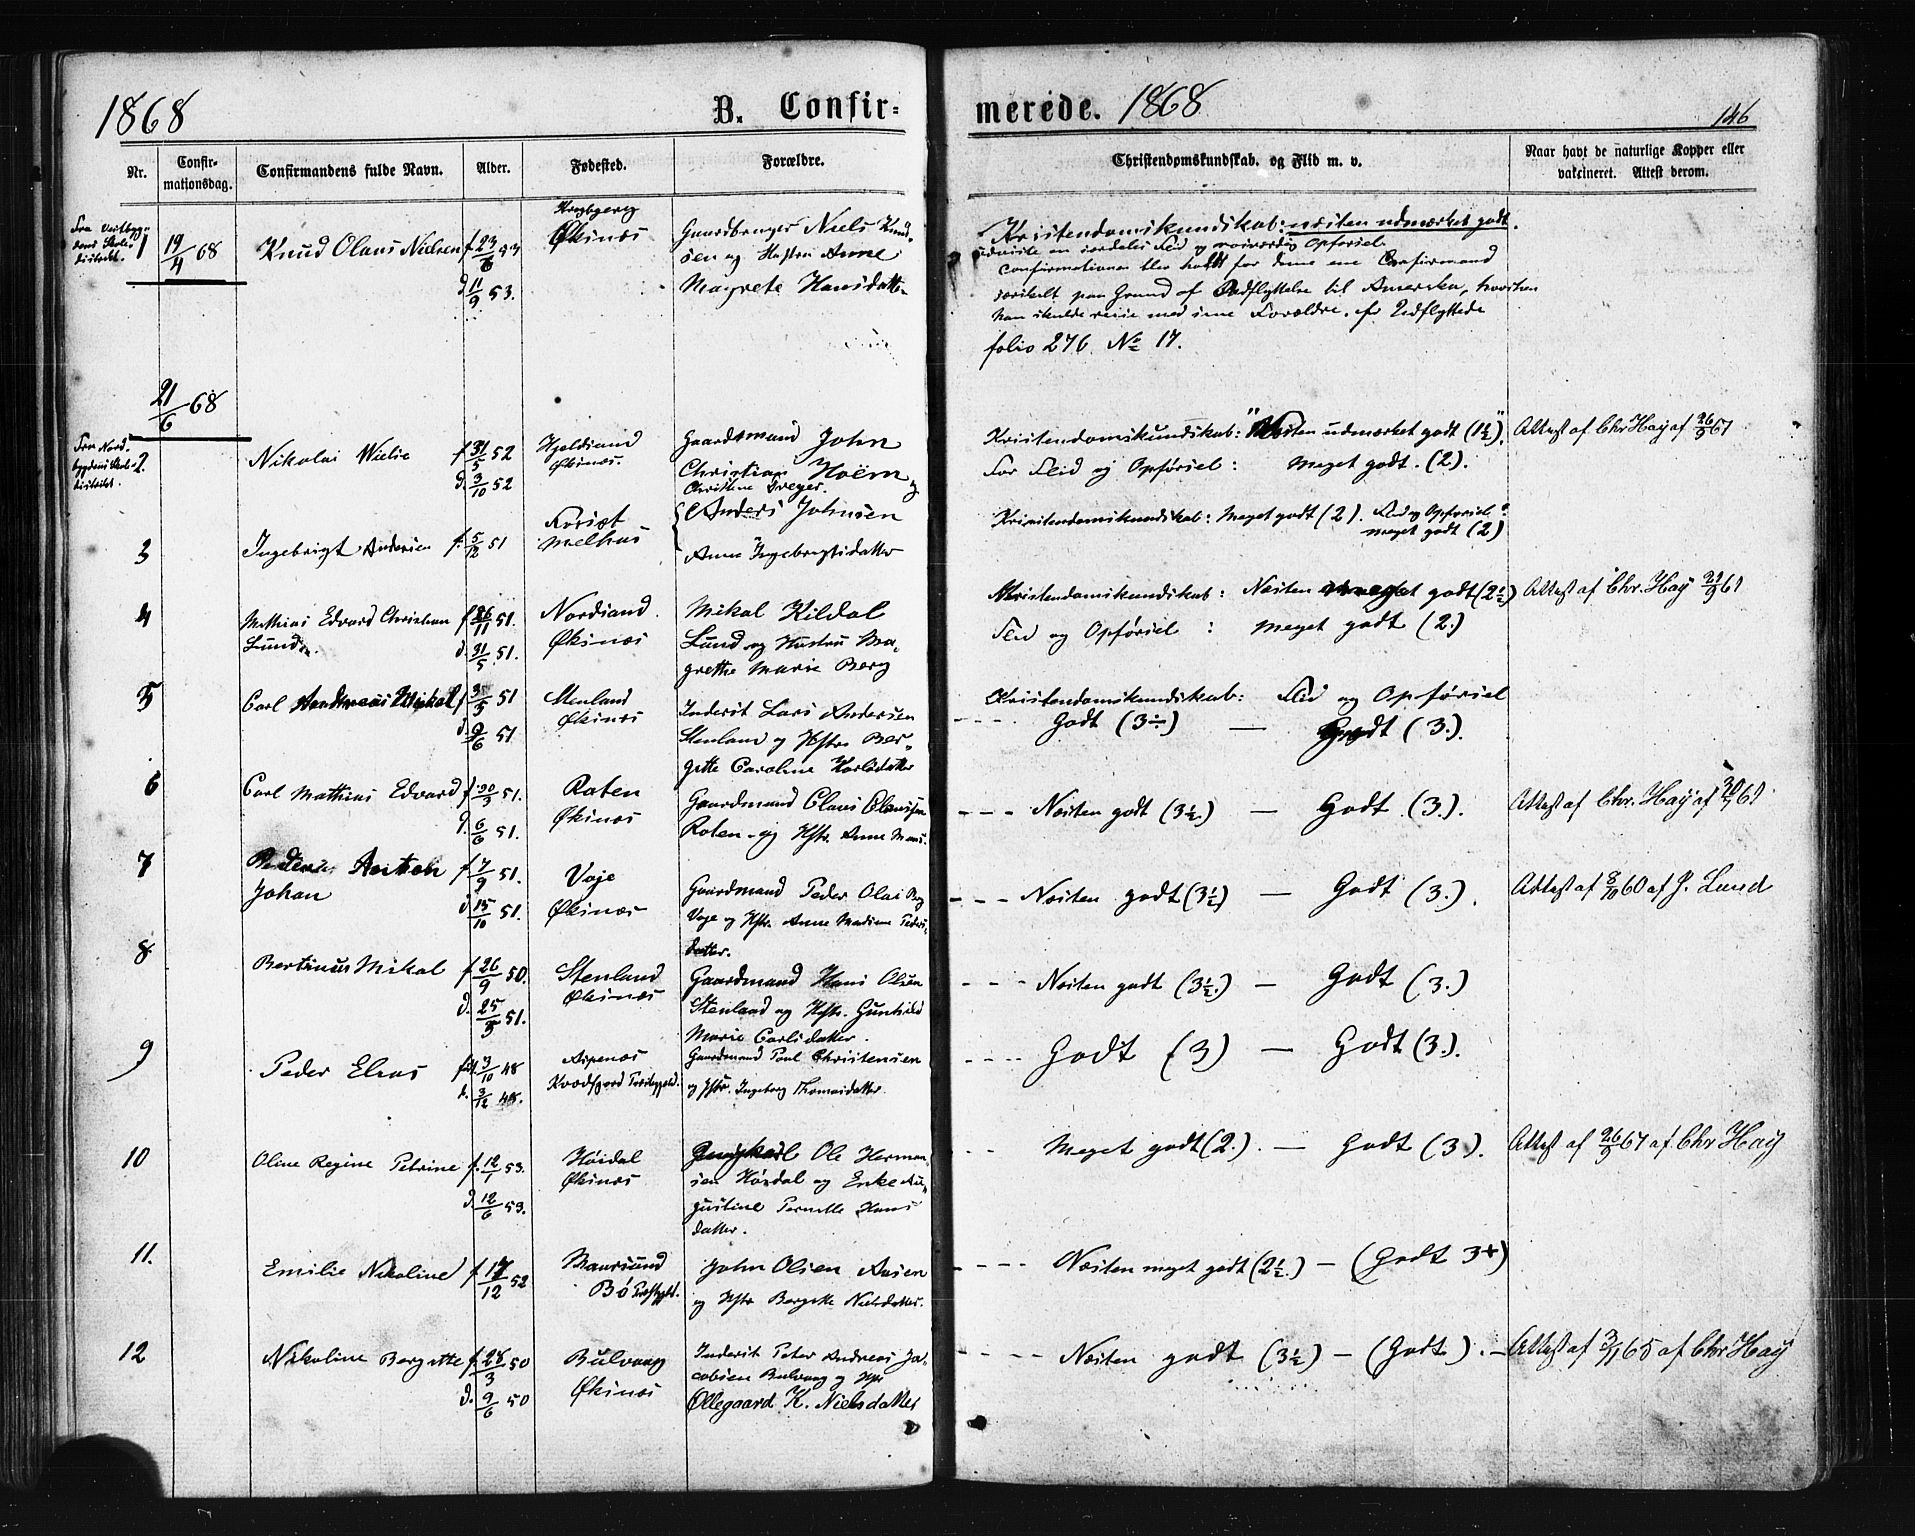 1868
B. Confir-
merede. 1868
146
Nr.
Confir-
mationsdag.
Confirmandens fulde Navn.
Alder.
Fødested.
Forældre.
Christendomskundskab, og Flid m. v.
Naar havt de naturlige Kopper eller
vakcineret. Attest derom.
1
19/4 68
Knud Olaus Nielsen
f. 23/6 53
d. 11/9 53.
Øksnes
Gaardbruger Niels Knud-
sen og Hustru Anne
Magrete Hansdatter
Kristendomskundskab: næsten udmærket godt.
udviste en særdeles Flid og roværdig Opførsel
Confirmationen blev holdt for denne ene Confirmand
særskilt paa Grund af Udflyttelse til Amerika, hvorhen
han skulde reise med sine Forældre. cfr Udflyttede
folio 276 No 17.
21/6 68
Fra Nord-
bygdens Skole-
distrikt.
2
Nikolai Wielie
f. 31/5 52
d. 3/10 52
Hjeldsand
Øksnes.
Gaardsmand John
Christian Hoëm og
Christine Dreyer.
Kristendomskundskab: "Næsten udmærket godt (1½)".
For Flid og Opførsel: Meget godt. (2).
Attest af Chr Hay af 26/9 67
3
Ingebrigt Andersen
f. 5/12 51
Melhus
Anders Johnsen
Anne Ingebregtsdatter
Kristendomskundskab: Meget godt (2). Flid og Opførsel:
meget godt (2)
4
Mathias Edvard Christian
Lund
f. 26/11 51.
d. 31/5 51.
Nordsand
Øksnes
Mikal Kildal
Lund og Hustru Ma-
grethe Marie Berg
Kristendomskundskab: Næsten meget godt (2½)
Flid og Opførsel: meget godt (2.)
Attest af Chr. Hay 29/9 67
5
Carl Andreas Mikal
f. 3/5 51
d. 9/6 51
Stenland
Øksnes
Inderst Lars Andersen
Stenland og Hstr. Ber-
gitte Caroline Karlsdatter
Kristendomskundskab: Flid og Opførsel
--- Godt (3÷) — Godt (3.).
6
Carl Mathias Edvard
f. 20/3 51.
d. 6/6 51.
Roten
Øksnes
Gaardmand Claus Clausen
Roten og Hstr. Anne Mons.
--- Næsten godt (3½.) — Godt (3.).
Attest af Chr. Hay af 30/9 67
7
Johan
f. 7/9 51.
d. 15/10 51.
Voje
Øksnes
Gaardmand Peder Olai Berg
Voje og Hstr. Anne Madsine Peders-
datter.
--- Næsten godt (3½) — Godt (3.).
Attest af 8/10 60 af J. Lund
8
Bertinus Mikal
f. 26/9 50.
d. 25/5 51.
Stenland
Øksnes
Gaardmand Hans Olsen
Stenland og Hstr. Gunhild
Marie Carlsdatter.
--- Næsten godt (3½.) — Godt (3.)
9
Peder Elias
f. 3/10 48
d. 3/12 48.
Aspenes
Kvædfjord Præstegjeld.
Gaardmand Poul Christensen
og Hstr. Ingeborg Thomasdatter
---- Godt (3) — Godt (3.).
10
Oline Regine Petrine
f. 12/1 53.
d. 12/6 53.
Høidal
Øksnes
Ungkarl Ole Herman-
sen Høidal og Enke Au-
gustine Pernille Hans
datter.
-- Meget godt (2.). — Godt (3).
Attest af 26/9 67 af Chr Hay
11.
Emilie Nikoline
f. 17/12 52
Maursund
Bø Præstgjd.
John Olsen Aasen
og Hstr Bergitte Nielsdatter.
---- Næsten meget godt (2½.) — (Godt 3+)
12
Nikoline Bergitte
f. 28/3 50
d. 9/6 50
Bulvaag
Øksnes
Inderst Peter Andreas Ja-
cobsen Bulvaag og Hstr
Øllegaard K. Nielsdatter
----- Næsten godt (3½) — (Godt). —
Attest af 3/1 65 af Chr Hay